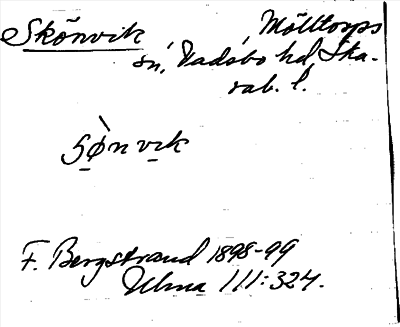 Skönvik Mölltorps
sn, Vadsbo hd, Ska-
rab. l.
so̊̀nvik
F. Bergstrand 1898-99
Ulma 111:324.